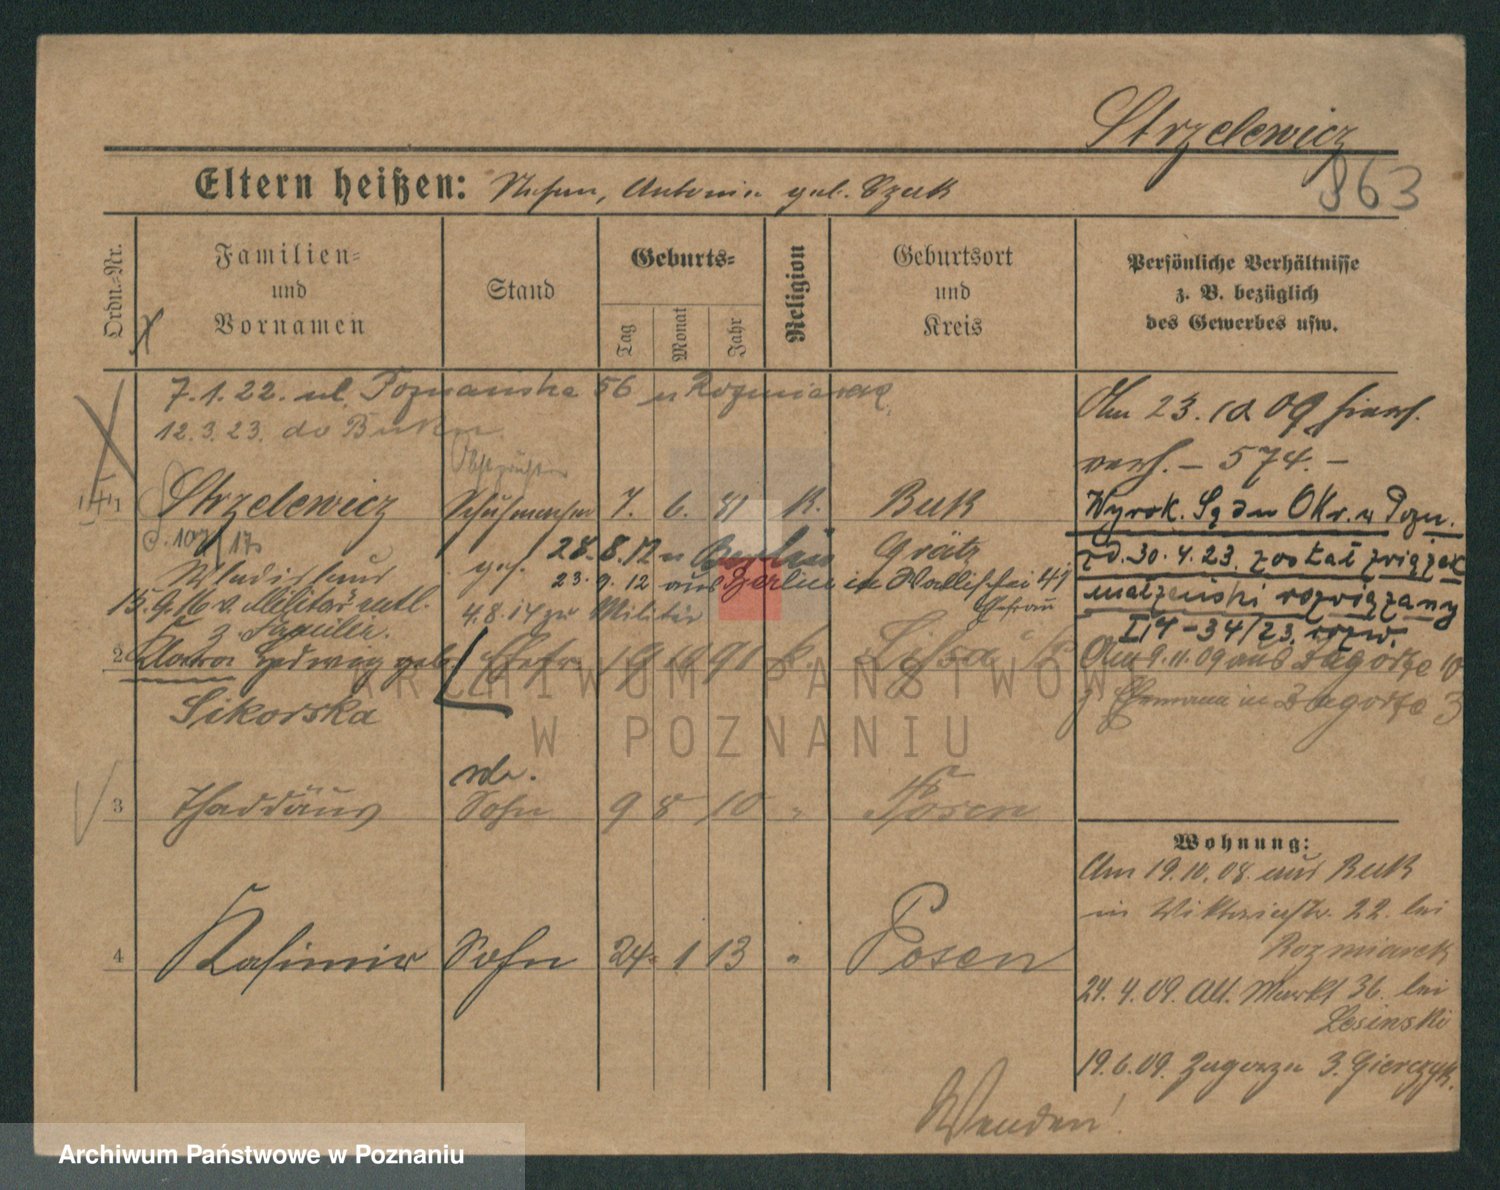 Strzelewicz
863
Eltern heißen: Stefan, Antonie geb. Czuk
Ordn.-Nr.
Familien-
und
Vornamen
Stand
Geburts-
Tag
Monat
Jahr
Religion
Geburtsort
und
Kreis
Persönliche Verhältnisse
z. B. bezüglich
des Gewerbes usw.
7.1.22. ul. Poznańska 56 u Rozmiarek
12.3.23. do Buku
Am 23. 10 09 hiers.
verh. – 574. –
1 Strzelewicz Schuhmacher 7. 6. 81 K. Buk
Wyrok. Są du Okr. w Pozn.
Grätz
28. 8. 12 n Berlin
z d. 30. 4. 23. został związek
Wladislaus
23. 9. 12 aus Berlin in Wallischei 41
Ehefrau
małżeński rozwiązany
15.9.16 v. Militär entl.
4.8.14 zu Militär
z. Familie.
II 4 – 34/23.
2 Klara Hedwig geb. Ehefr. 19 10 91 k. Lissa
Sikorska
Am 9.11.09 aus Zagorze 10
z Ehemann in Zagorze 3
3 Thaddäus Sohn 9 8 10 " Posen
4 Kasimir Sohn 24 1 13 " Posen
Wohnung:
Am 19.10.08. aus Buk
in Viktoriastr. 22. bei
Rozmiarek
24. 4. 09. Alt. Markt 36. bei
Lesinski
19.6.09. Zagorze 3. Gierczyk.
Wenden!
ARCHIWUM PAŃSTWOWE
W POZNANIU
Archiwum Państwowe w Poznaniu